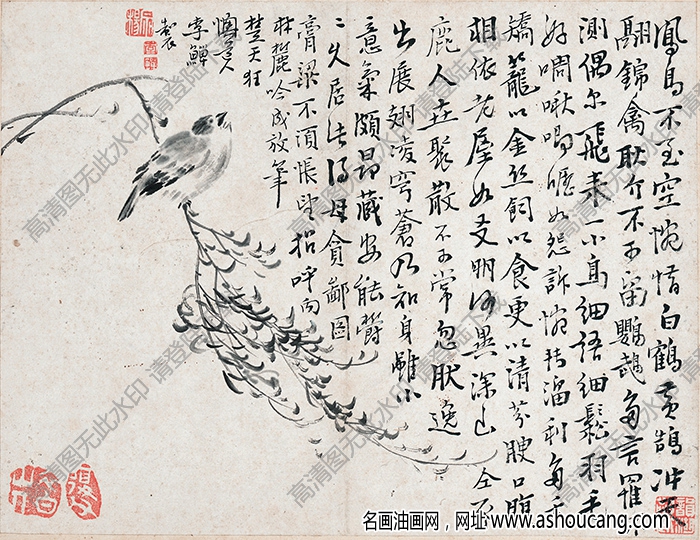 鳳鳥不至空惋惜白鶴黃鵠冲天
翮錦禽耿介不可留鸚鵡多言羅
測偶尔飛来一小鳥細語細鬆羽毛
好啁啾唧如怨訴惋轉溜利
籠以金丝飼以食更以清芬腴口腹
相依老屋如友朋何異深山全不
鹿人在聚散不可常忽肰逸
出展翅凌穹蒼乃知身雖小
意氣頗昂藏安能鬱
二久居此得毋貪鄙圖
膏粱不須悵望招呼向
林麓吟成放筆
楚天狂
懊道人
李鱓
製
高清图无此水印 请登陆下载
名画油画网，网址www.ashoucang.com